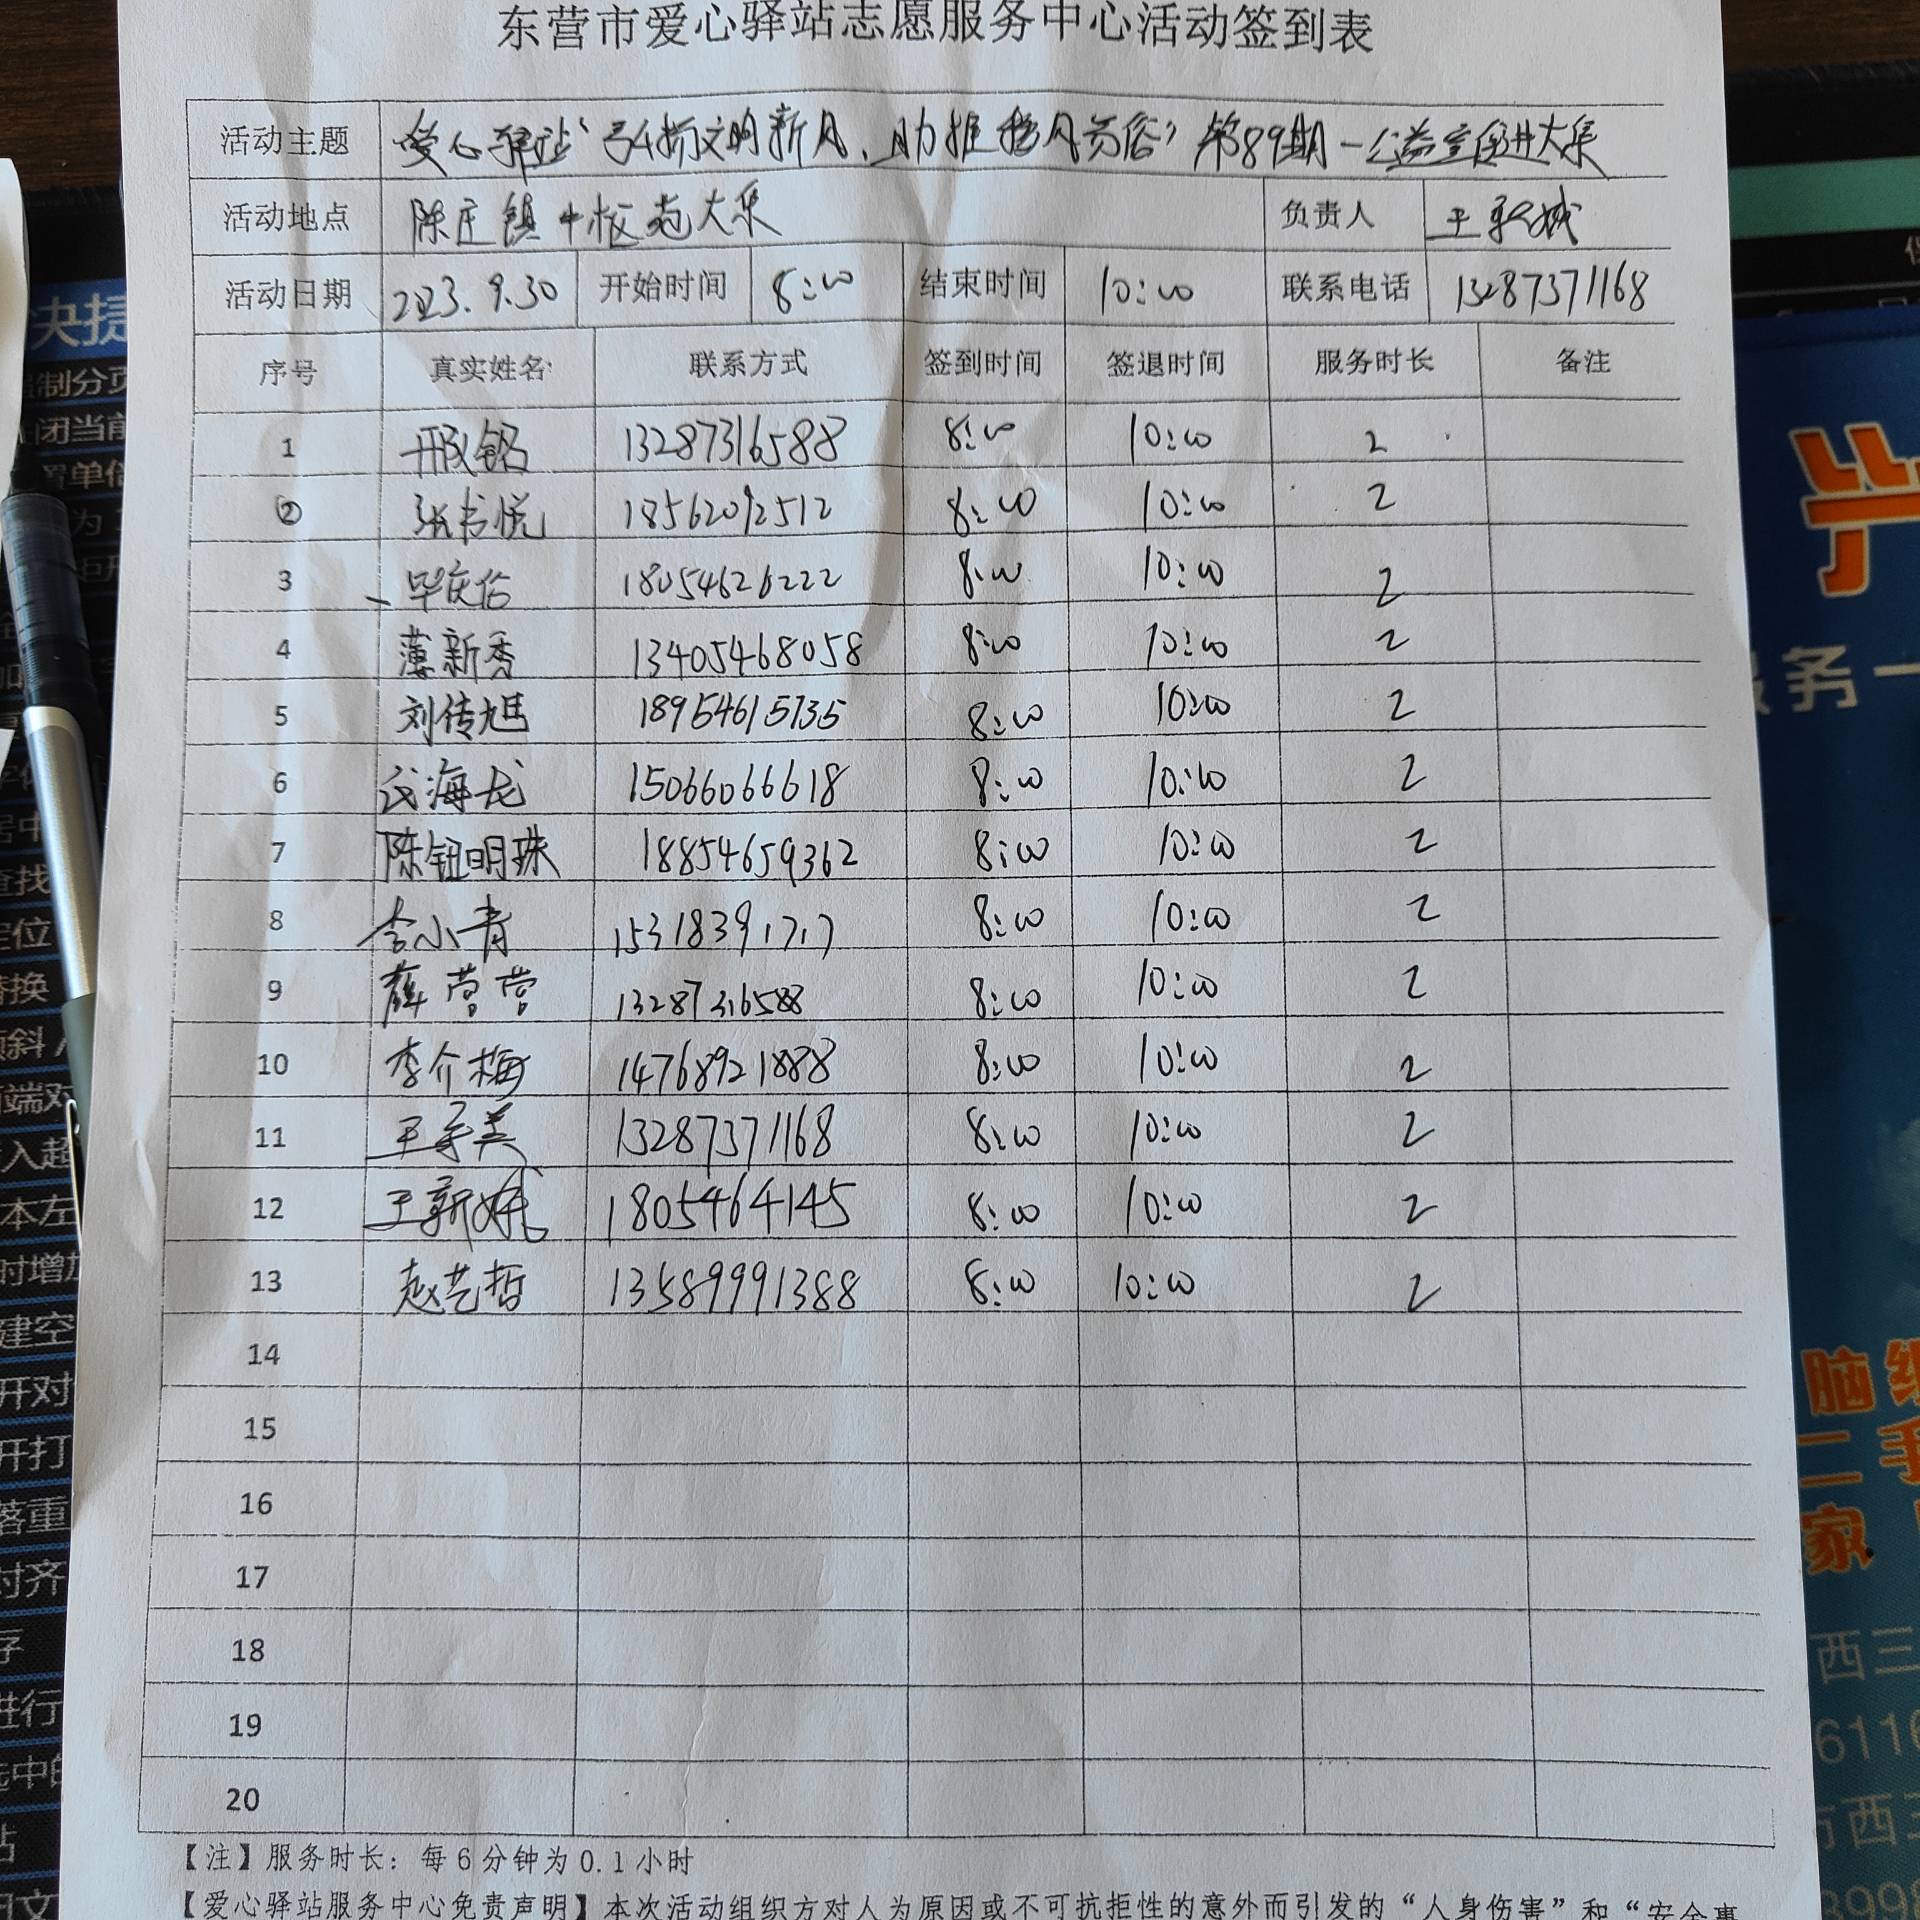 东营市爱心驿站志愿服务中心活动签到表
活动主题 爱心驿站“弘扬文明新风、助推移风易俗”第89期-公益宣传进大集
活动地点 陈庄镇中枢苑大集 负责人 王
活动日期 2023.9.30 开始时间 8:00 结束时间 10:00 联系电话 13287371168
序号 真实姓名 联系方式 签到时间 签退时间 服务时长 备注
1 邢铭 13287316588 8:00 10:00 2
2 张书悦 18562092512 8:00 10:00 2
3 毕庆佑 18054626222 8:00 10:00 2
4 薄新秀 13405468058 8:00 10:00 2
5 刘传旭 18954615735 8:00 10:00 2
6 武海龙 15066066618 8:00 10:00 2
7 陈钮明珠 18854659362 8:00 10:00 2
8 李小青 15318391717 8:00 10:00 2
9 薛营营 13287316588 8:00 10:00 2
10 李介梅 14768921888 8:00 10:00 2
11 王守美 13287371168 8:00 10:00 2
12 王新娥 1805464145 8:00 10:00 2
13 赵艺哲 13589991388 8:00 10:00 2
14
15
16
17
18
19
20
【注】服务时长：每6分钟为0.1小时
【爱心驿站服务中心免责声明】本次活动组织方对人为原因或不可抗拒性的意外而引发的“人身伤害”和“安全事